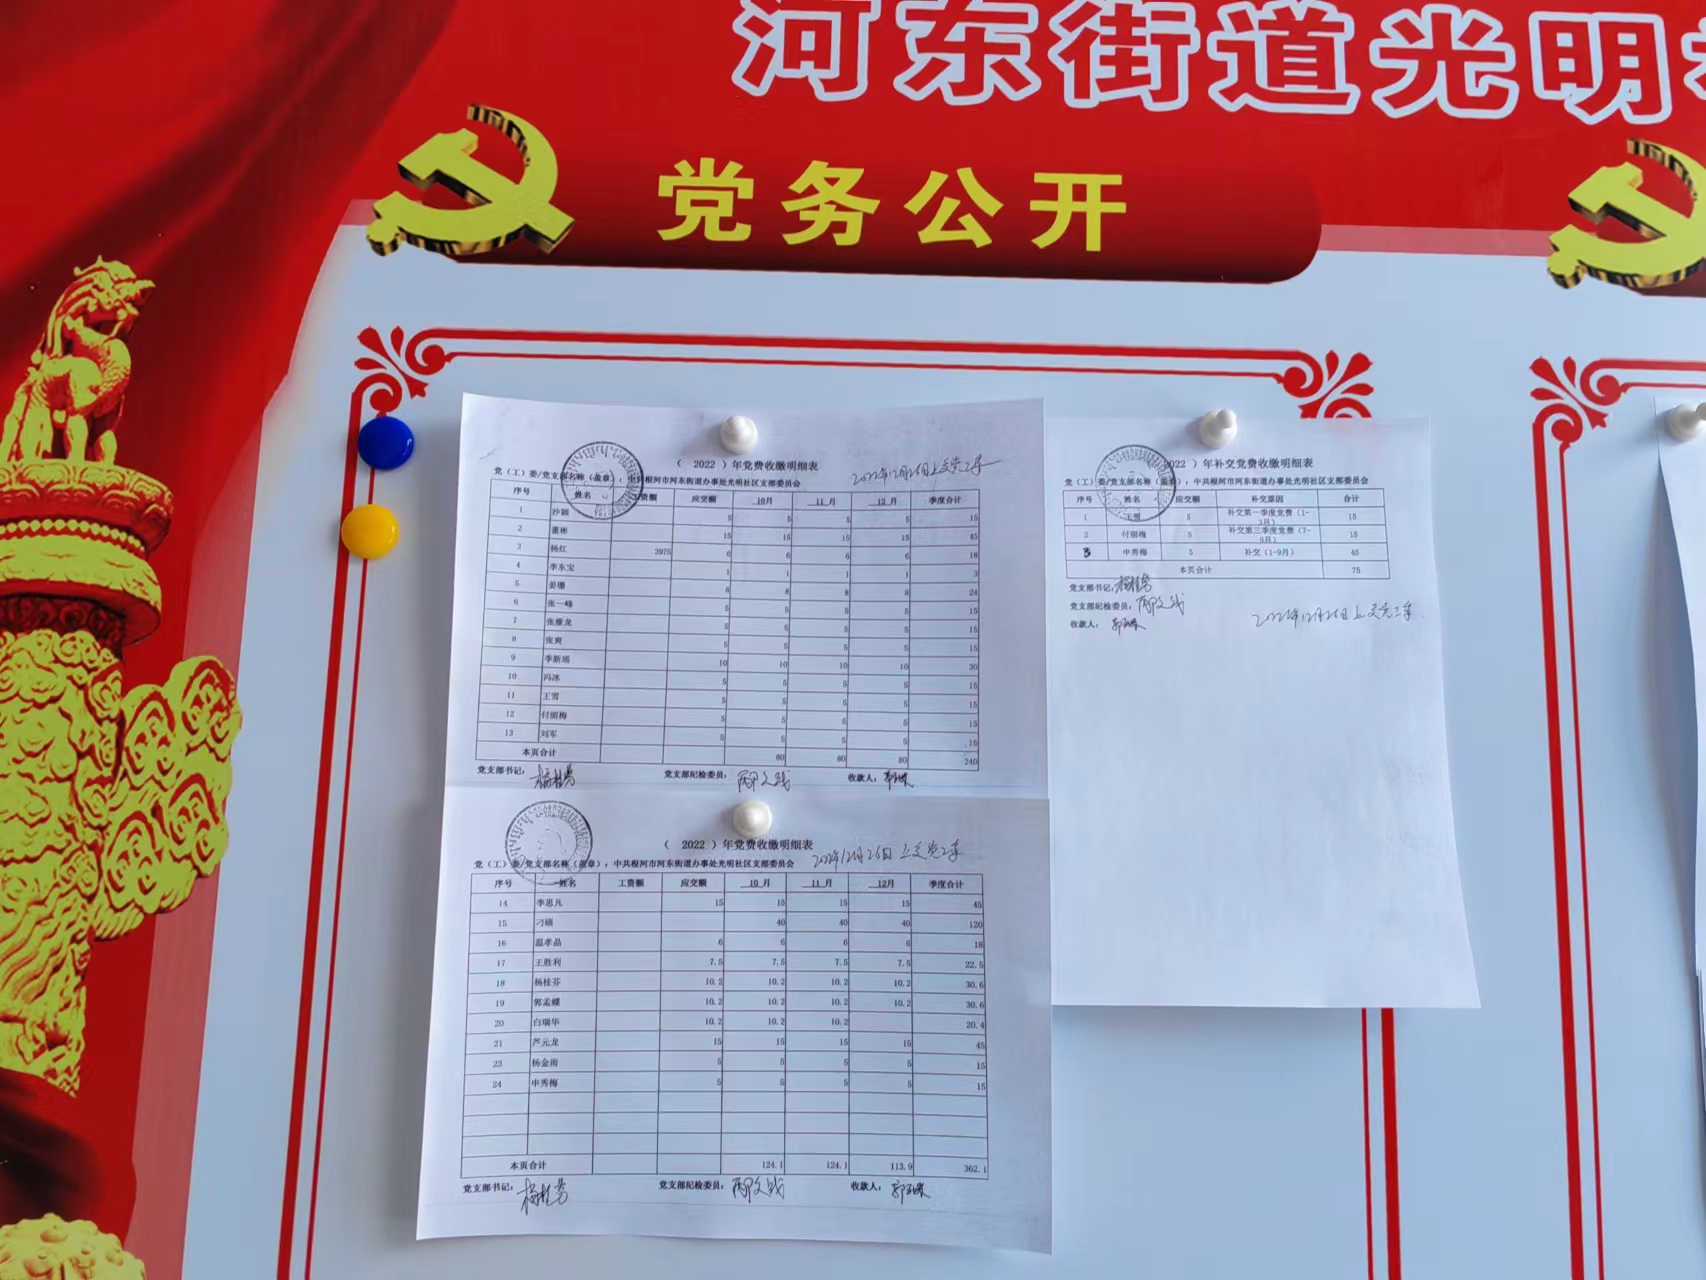 河东街道光明
党务公开
（ 2022 ）年党费收缴明细表
2022年12月26日上交党工委
党（工）委/党支部名称（盖章）：中共根河市河东街道办事处光明社区支部委员会
序号 姓名 资额 应交额 10月 11月 12月 季度合计
1 沙颖 5 5 5 5 15
2 董彬 15 15 15 15 45
3 杨红 3975 6 6 6 6 18
4 李东宝 1 1 1 1 3
5 姜珊 8 8 8 8 24
6 张一峰 5 5 5 5 15
7 张雁龙 5 5 5 5 15
8 张爽 5 5 5 5 15
9 李新瑶 10 10 10 10 30
10 冯冰 5 5 5 5 15
11 王雪 5 5 5 5 15
12 付丽梅 5 5 5 5 15
13 刘军 5 5 5 5 15
本页合计 80 80 80 240
党支部书记： 党支部纪检委员： 收款人：
（ 2022 ）年党费收缴明细表
2022年12月26日上交党工委
党（工）委/党支部名称（盖章）：中共根河市河东街道办事处光明社区支部委员会
序号 姓名 工资额 应交额 10月 11月 12月 季度合计
14 李思凡 15 15 15 15 45
15 刁硕 40 40 40 120
16 温孝晶 6 6 6 6 18
17 王胜利 7.5 7.5 7.5 7.5 22.5
18 杨桂芬 10.2 10.2 10.2 10.2 30.6
19 郭孟蝶 10.2 10.2 10.2 10.2 30.6
20 白瑞华 10.2 10.2 10.2 20.4
21 芦元龙 15 15 15 15 45
23 杨金雨 5 5 5 5 15
24 申秀梅 5 5 5 5 15
本页合计 124.1 124.1 113.9 362.1
党支部书记： 党支部纪检委员： 收款人：
2022 ）年补交党费收缴明细表
党（工）委/党支部名称（盖章）：中共根河市河东街道办事处光明社区支部委员会
序号 姓名 应交额 补交原因 合计
1 王雪 5 补交第一季度党费（1-3月） 15
2 付丽梅 5 补交第三季度党费（7-9月） 15
3 申秀梅 5 补交（1-9月） 45
本页合计 75
党支部书记：
党支部纪检委员：
收款人：
2022年12月26日上交党工委